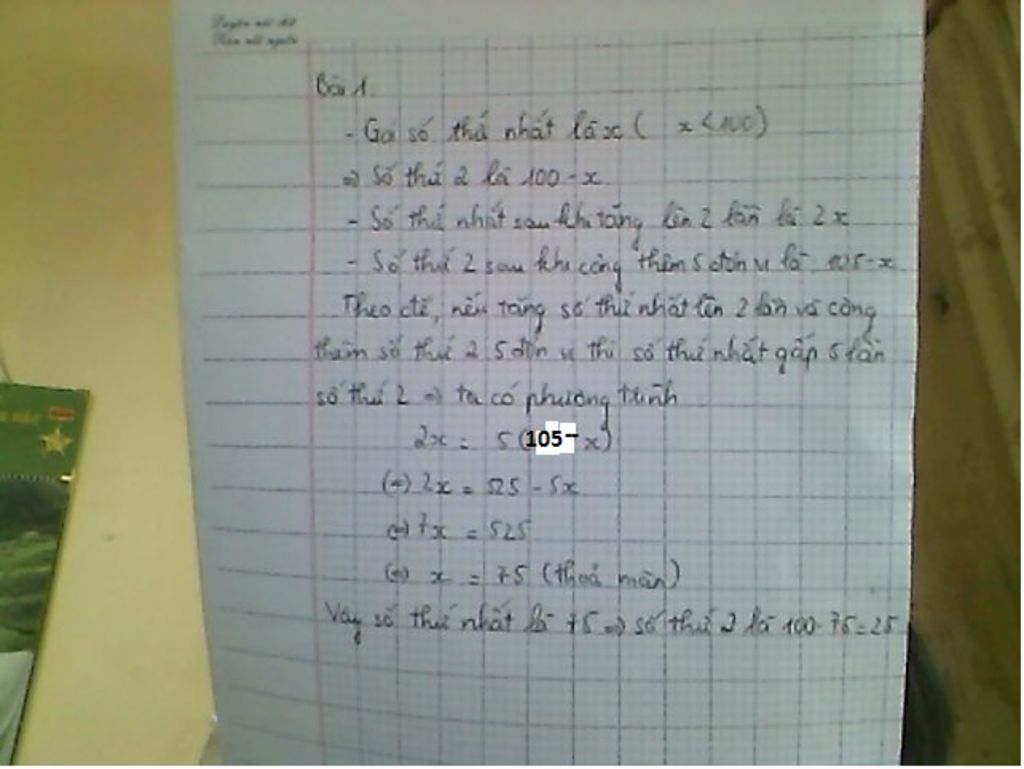 Luyện nét chữ
Rèn nết người
Bài 1
- Gọi số thứ nhất là x ( x < 100)
=> Số thứ 2 là 100 - x
- Số thứ nhất sau khi tăng lên 2 lần là 2x
- Số thứ 2 sau khi cộng thêm 5 đơn vị là 105 - x
Theo đề, nếu tăng số thứ nhất lên 2 lần và cộng
thêm số thứ 2 5 đơn vị thì số thứ nhất gấp 5 lần
số thứ 2 => ta có phương trình
2x = 5(105 - x)
(=) 2x = 525 - 5x
(=) 7x = 525
(=) x = 75 (thoả mãn)
Vậy số thứ nhất là 75 => số thứ 2 là 100 - 75 = 25